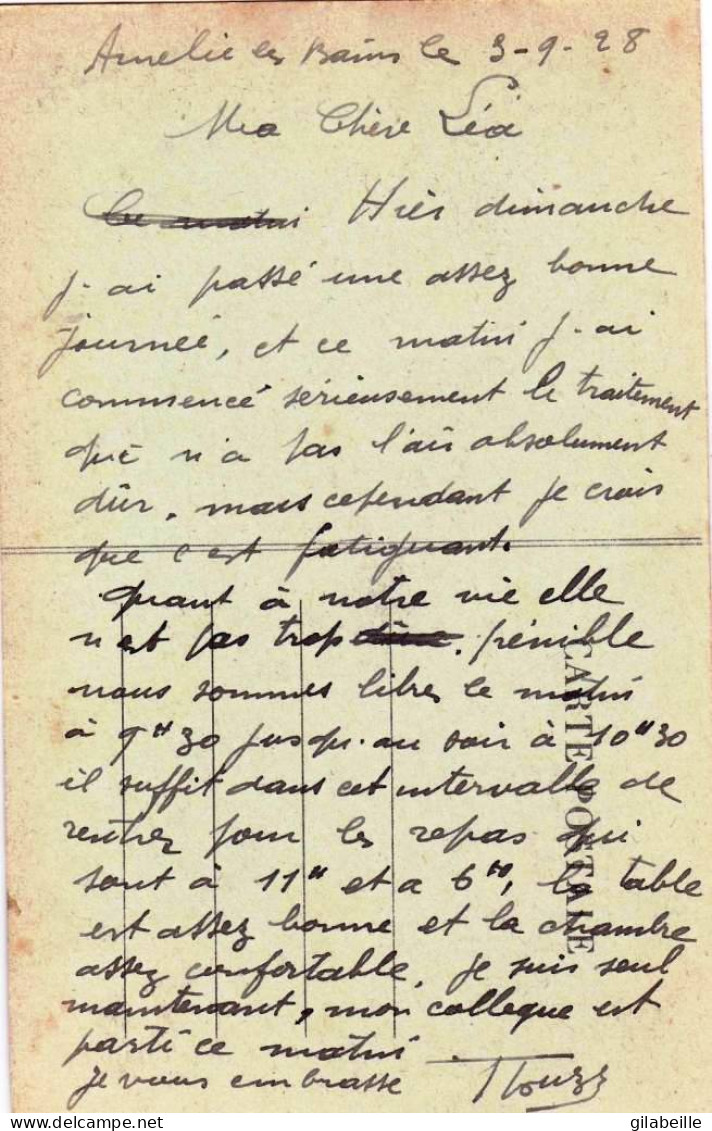 Amelie les Bains le 3-9-28
Ma Chère Léa
Ce matin Hier dimanche
j-ai passé une assez bonne
journée, et ce matin j-ai
commencé sérieusement le traitement
qui n'a pas l'air absolument
dûr, mais cependant je crois
que c'est fatiguant.
quant à notre vie elle
n'est pas trop dûre. pénible
nous sommes libres le matin
à 9H30 jusqu'au soir à 10H30
il suffit dans cet intervalle de
rentrer pour les repas qui
sont à 11H et a 6H, la table
est assez bonne et la chambre
assez confortable, je suis seul
maintenant, mon collegue est
parti ce matin
je vous embrasse
CARTE POSTALE
delcampe.net
gilabeille